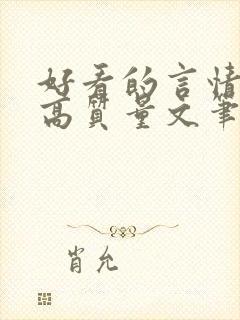 好看的言情
高质量文笔
肖允